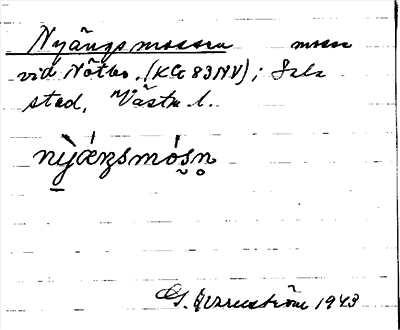 Nyängsmossen mosse
vid Nötbo. (KG 83NV); Sala
stad, Västm l.
nỳǽŋsmósn̥
G. 1943